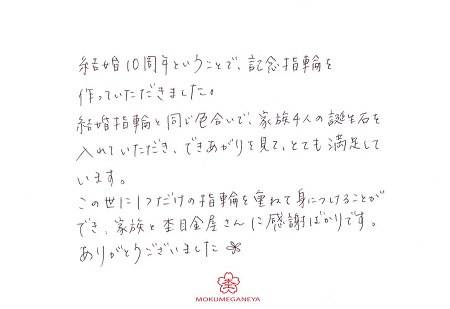 結婚10周年ということで、記念指輪を
作っていただきました。
結婚指輪と同じ色合いで、家族4人の誕生石を
入れていただき、できあがりを見て、とても満足して
います。
この世に1つだけの指輪を重ねて身につけることが
でき、家族と杢目金屋さんに感謝ばかりです。
ありがとうございました
MOKUMEGANEYA